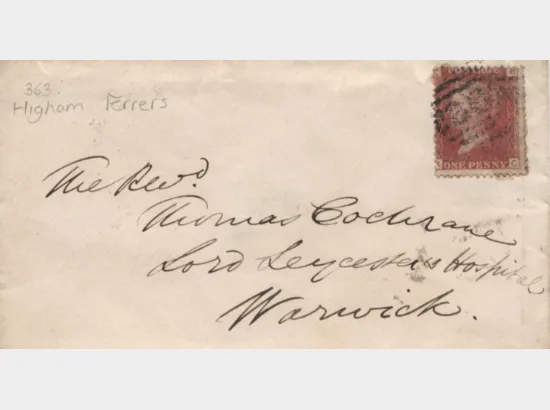 363.
Higham Ferrers
ONE PENNY
The Revd.
Thomas Cochrane
Lord Leycesters Hospital
Warwick.